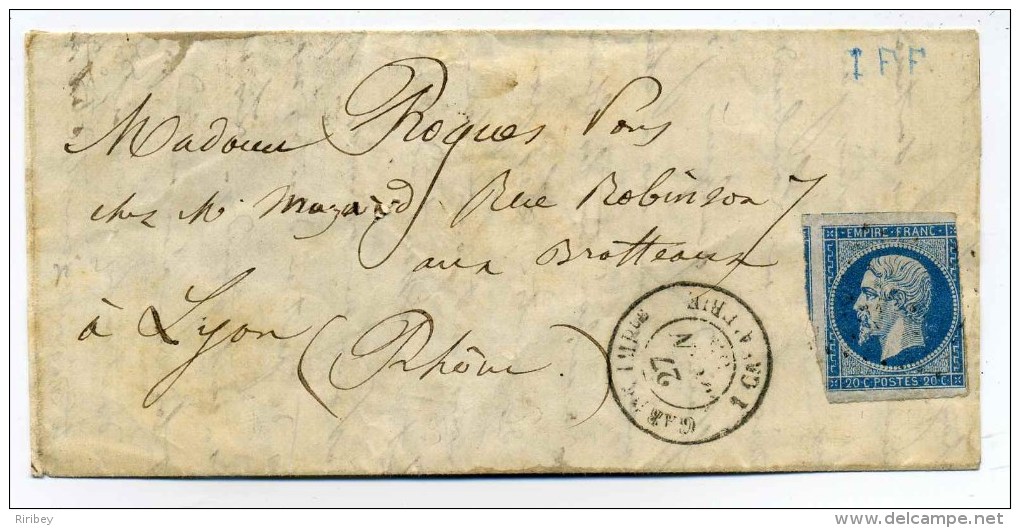 I F F
Madame Roques Pons
chez Mr Mazard Rue Robinson 7
aux Brotteaux
à Lyon
(Rhône)
EMPIRE·FRANC·
20·C·POSTES·20·C
27
Riribey
www.delcampe.net